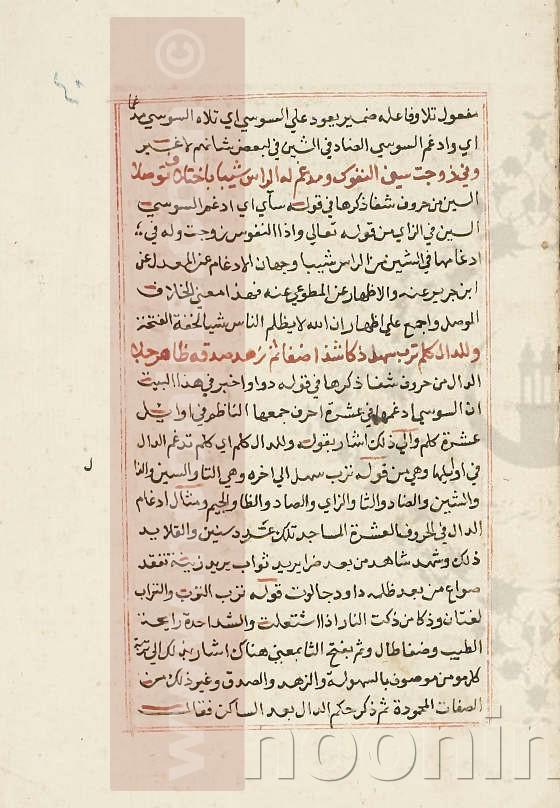 مفعول تلا وفاعله ضمير يعود علي السوسي اي تلاه السوسي مدغما
اي وادغم السوسي الضاد في الشين في لبعض شانهم لا غير
وفي زوجت سين النفوس ومدغم له الراس شيبا باختلاف توصلا
السين من حروف شفا ذكرها في قوله سأي اي ادغم السوسي
السين في الزاي من قوله تعالي واذا النفوس زوجت وله في
ادغامها في الشين من الراس شيبا وجهان الادغام عن المعدل عن
ابن جرير عنه والاظهار عن المطوعي عنه فهذا معني الخلاف
الموصل واجمع علي اظهار ان الله لا يظلم الناس شيا لخفة الفتحة
وللدال كلم ترب سهل ذكا شذا ضفا ثم زهد صدقه ظاهر جلا
الدال من حروف شفا ذكرها في قوله دوا واخبر في هذا البيت
ان السوسي ادغمها في عشرة احرف جمعها الناظم في اوايل
عشرة كلم والي ذلك اشار بقوله وللدال كلم اي كلم تدغم الدال
في اوايلها وهي من قوله ترب سهل الي اخره وهي التا والسين والذا
والشين والضاد والثا والزاي والصاد والظا والجيم ومثال ادغام
الدال في الحروف العشرة المساجد تلك عدد سنين والقلايد
ذلك وشهد شاهد من بعد ضرا يريد ثواب يريد زينة تفقد
صواع من بعد ظلمه داود جالوت قوله ترب الترب والتراب
لغتان وذكا من ذكت النار اذا اشتعلت والشذا حدة رايحة
الطيب وضفا طال وثم بفتح الثا بمعني هناك اشار بذلك الي تربة
كل مومن موصوف بالسهولة والزهد والصدق وغير ذلك من
الصفات المحمودة ثم ذكر حكم الدال بعد الساكن فقال
ل
noonin